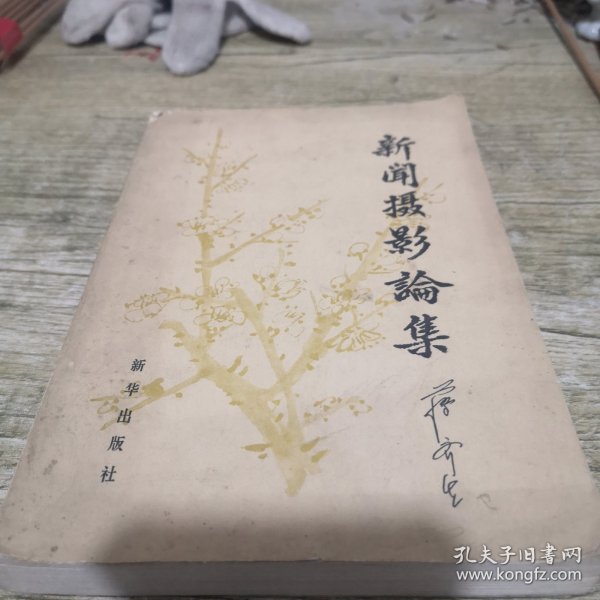 新闻摄影論集
蒋齐生
新华出版社
孔夫子旧书网
www.kongfz.com